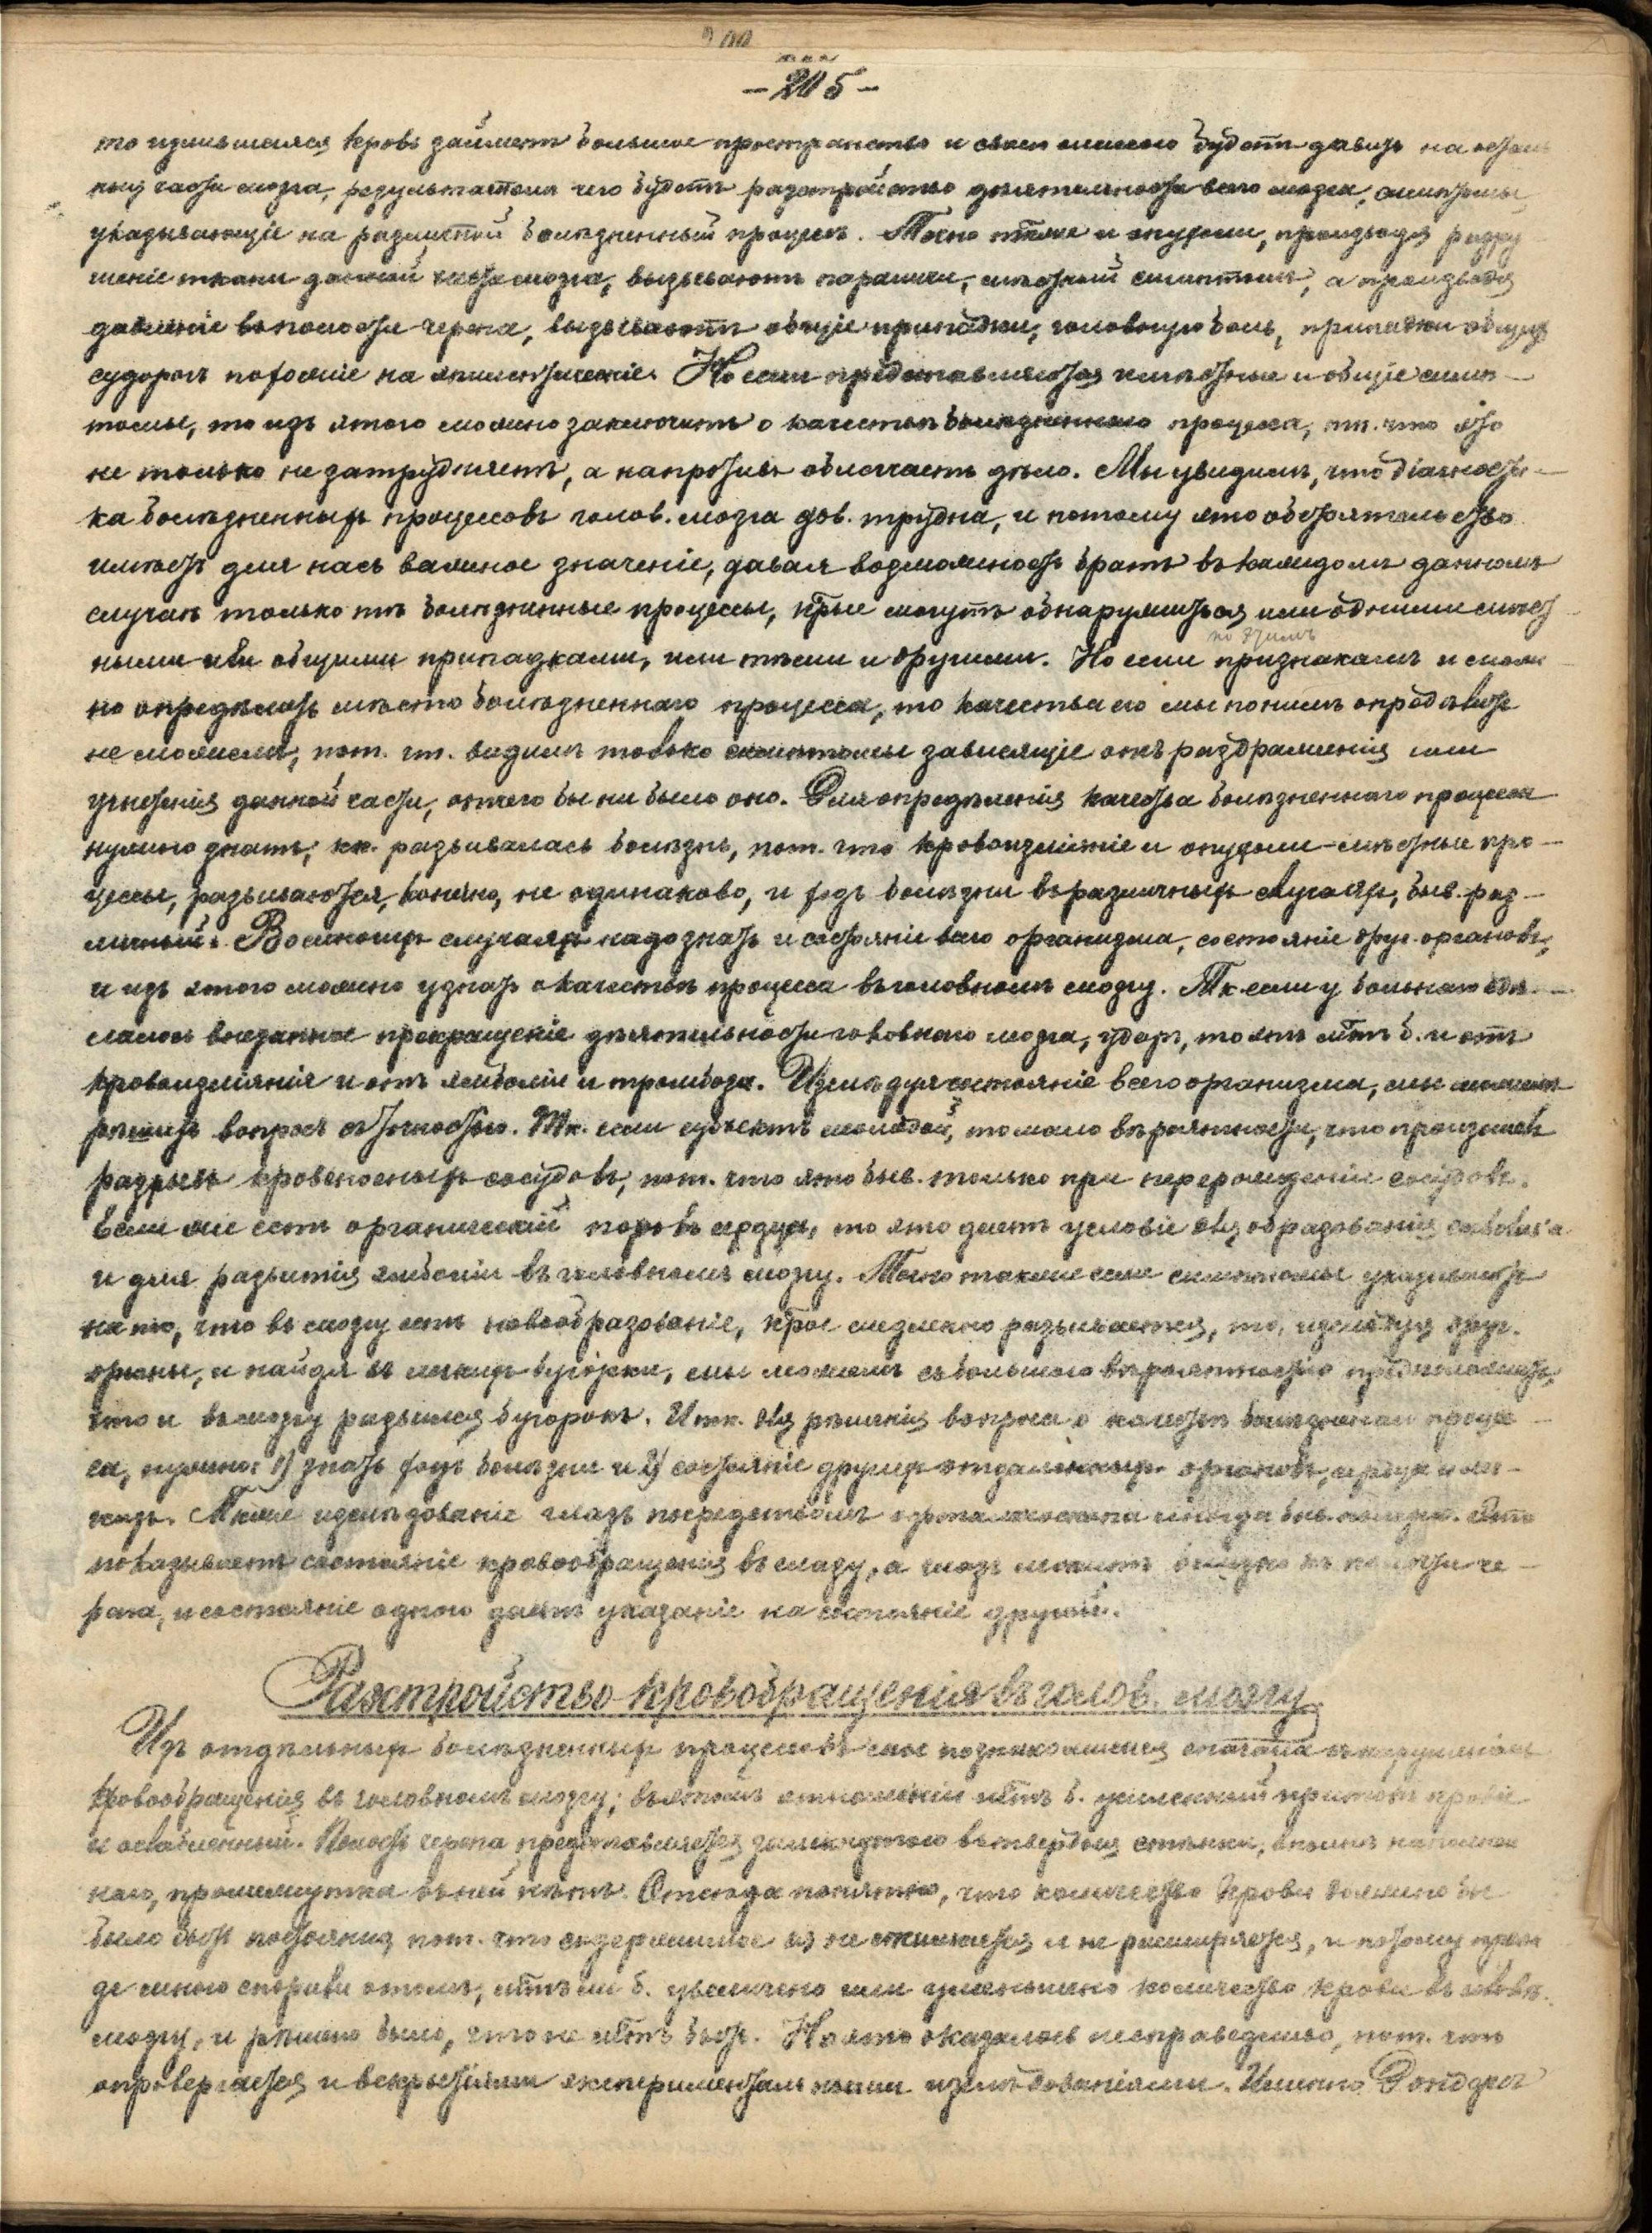 - 205 -
то излившаяся кровь займетъ большое пространство и своею массою будетъ давить на осталь
ныя части мозга, результатомъ чего будетъ разстройство дѣятельности всего мозга, симптомы,
указывающіе на разлитой болѣзненный процессъ. Точно также и опухоли, производя разру-
шеніе ткани данной части мозга, вызываютъ параличи, мѣстный симптомъ, а производя
давленіе въ полости черепа, вызываютъ общіе припадки, головную боль, припадки общихъ
судорогъ похожіе на эпилептическіе. Но если представляются мѣстные и общіе симп-
томы, то изъ этого можно заключить о качествѣ болѣзненнаго процесса, пт. что это
не только не затрудняетъ, а напротивъ облегчаетъ дѣло. Мы увидимъ, что діагности-
ка болѣзненныхъ процессовъ голов. мозга дов. трудна, и потому это обстоятельство
имѣетъ для насъ важное значеніе, давая возможность брать въ каждомъ данномъ
случаѣ только тѣ болѣзненные процессы, к̃рые могутъ обнаружиться или одними мѣст-
ными или общими припадками, или тѣми и другими. Но если по этимъ признакамъ и мож-
но опредѣлить мѣсто болѣзненнаго процесса, то качества его мы по нимъ опредѣлить
не можемъ, пот. чт. видимъ только симптомы зависящіе отъ раздраженія или
угнетенія данной части, отчего бы ни было оно. Для опредѣленія качества болѣзненнаго процесса
нужно знать, кк. развивалась болѣзнь, пот. что кровоизліяніе и опухоли - мѣстные про-
цессы, развиваются, конечно, не одинаково, и ходъ болѣзни въ различныхъ случаяхъ, быв. раз-
личный. Во многихъ случаяхъ надо знать и состояніе всего организма, состояніе друг. органовъ,
и изъ этого можно узнать о качествѣ процесса въ головномъ мозгу. Тк. если у больнаго сдѣ-
лалось внезапное прекращеніе дѣятельности головнаго мозга, ударъ, то это м̃тъ б. и отъ
кровоизліянія и отъ эмболіи и тромбоза. Изслѣдуя состояніе всего организма, мы можемъ
рѣшить вопросъ съ точностью. Тк. если субъектъ молодой, то мало вѣроятности, что произошелъ
разрывъ кровеносныхъ сосудовъ, пот. что это быв. только при перерожденіи сосудовъ.
Если же есть органическій порокъ сердца, то это даетъ условіе для образованія
и для развитія эмболіи въ головномъ мозгу. Точно также если симптомы указываютъ
на то, что въ мозгу есть новообразованіе, к̃рое медленно развивается, то, изслѣдуя друг.
органы, и найдя въ легкихъ бугорки, мы можемъ съ большою вѣроятностію предположить,
что и въ мозгу развился бугорокъ. Итк. для рѣшенія вопроса о качествѣ болѣзненнаго процес-
са, нужно: 1) знать ходъ болѣзни и 2) состояніе другихъ отдаленныхъ органовъ, сердца и лег-
кихъ. Также изслѣдованіе глазъ посредствомъ офтальмоскопа иногда быв. полезно. Это
показываетъ состояніе кровообращенія въ глазу, а глазъ лежитъ близко къ полости че-
репа, и состояніе одного даетъ указаніе на состояніе другой.
Разстройство кровообращенія въ голов. мозгу
Изъ отдѣльныхъ болѣзненныхъ процессовъ мы познакомимся сначала съ нарушеніемъ
кровообращенія въ головномъ мозгу; въ этомъ отношеніи м̃тъ б. усиленный притокъ крови
и ослабленный. Полость черепа представляется замкнутою въ твердыя стѣнки, вполнѣ наполнен-
ною, промежутка въ ней нѣтъ. Отсюда понятно, что количество крови должно бы
было быть постоянно, пот. что содержимое ея не сжимается и не расширяется, и потому преж-
де много спорили о томъ, м̃тъ ли б. увеличено или уменьшено количество крови въ головн.
мозгу, и рѣшено было, что не м̃тъ быть. Но это оказалось несправедливо, пот. что
опровергается и вскрытіями экспериментальными изслѣдованіями. Именно Дондерсъ